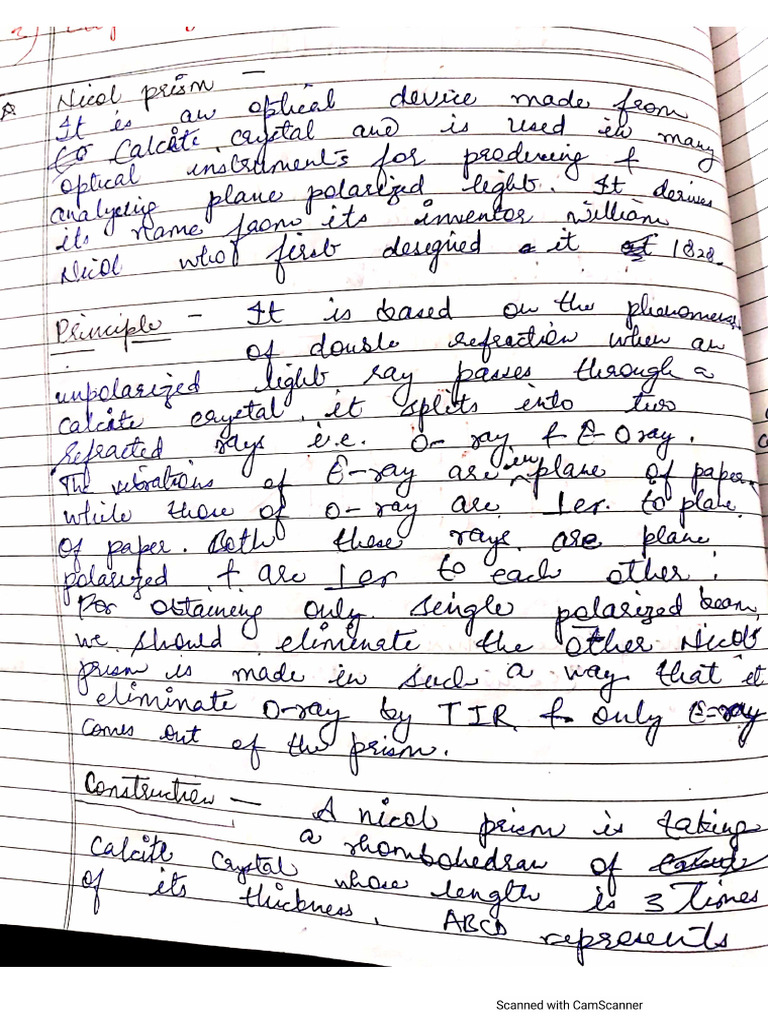 Nicol prism -
It is an optical device made from
Calcite crystal and is used in many
optical instruments for producing &
analyzing plane polarized light. It derives
its name from its inventor William
Nicol who first designed it 1828.
Principle - It is based on the phenomena
of double refraction when an
unpolarized light ray passes through a
calcite crystal, it splits into two
refracted rays i.e. O-ray & E-Oray.
The vibrations of E-ray are in plane of paper
while those of O-ray are ⊥er to plane
of paper. Both these rays are plane
polarized & are ⊥er to each other.
For obtaining only single polarized beam,
we should eliminate the other Nicol
prism is made in such a way that it
eliminate O-ray by TIR & only E-ray
comes out of the prism.
Construction - A nicol prism is taking
a rhombohedran of
Calcite crystal whose length is 3 Times
of its thickness. ABCD represents
Scanned with CamScanner